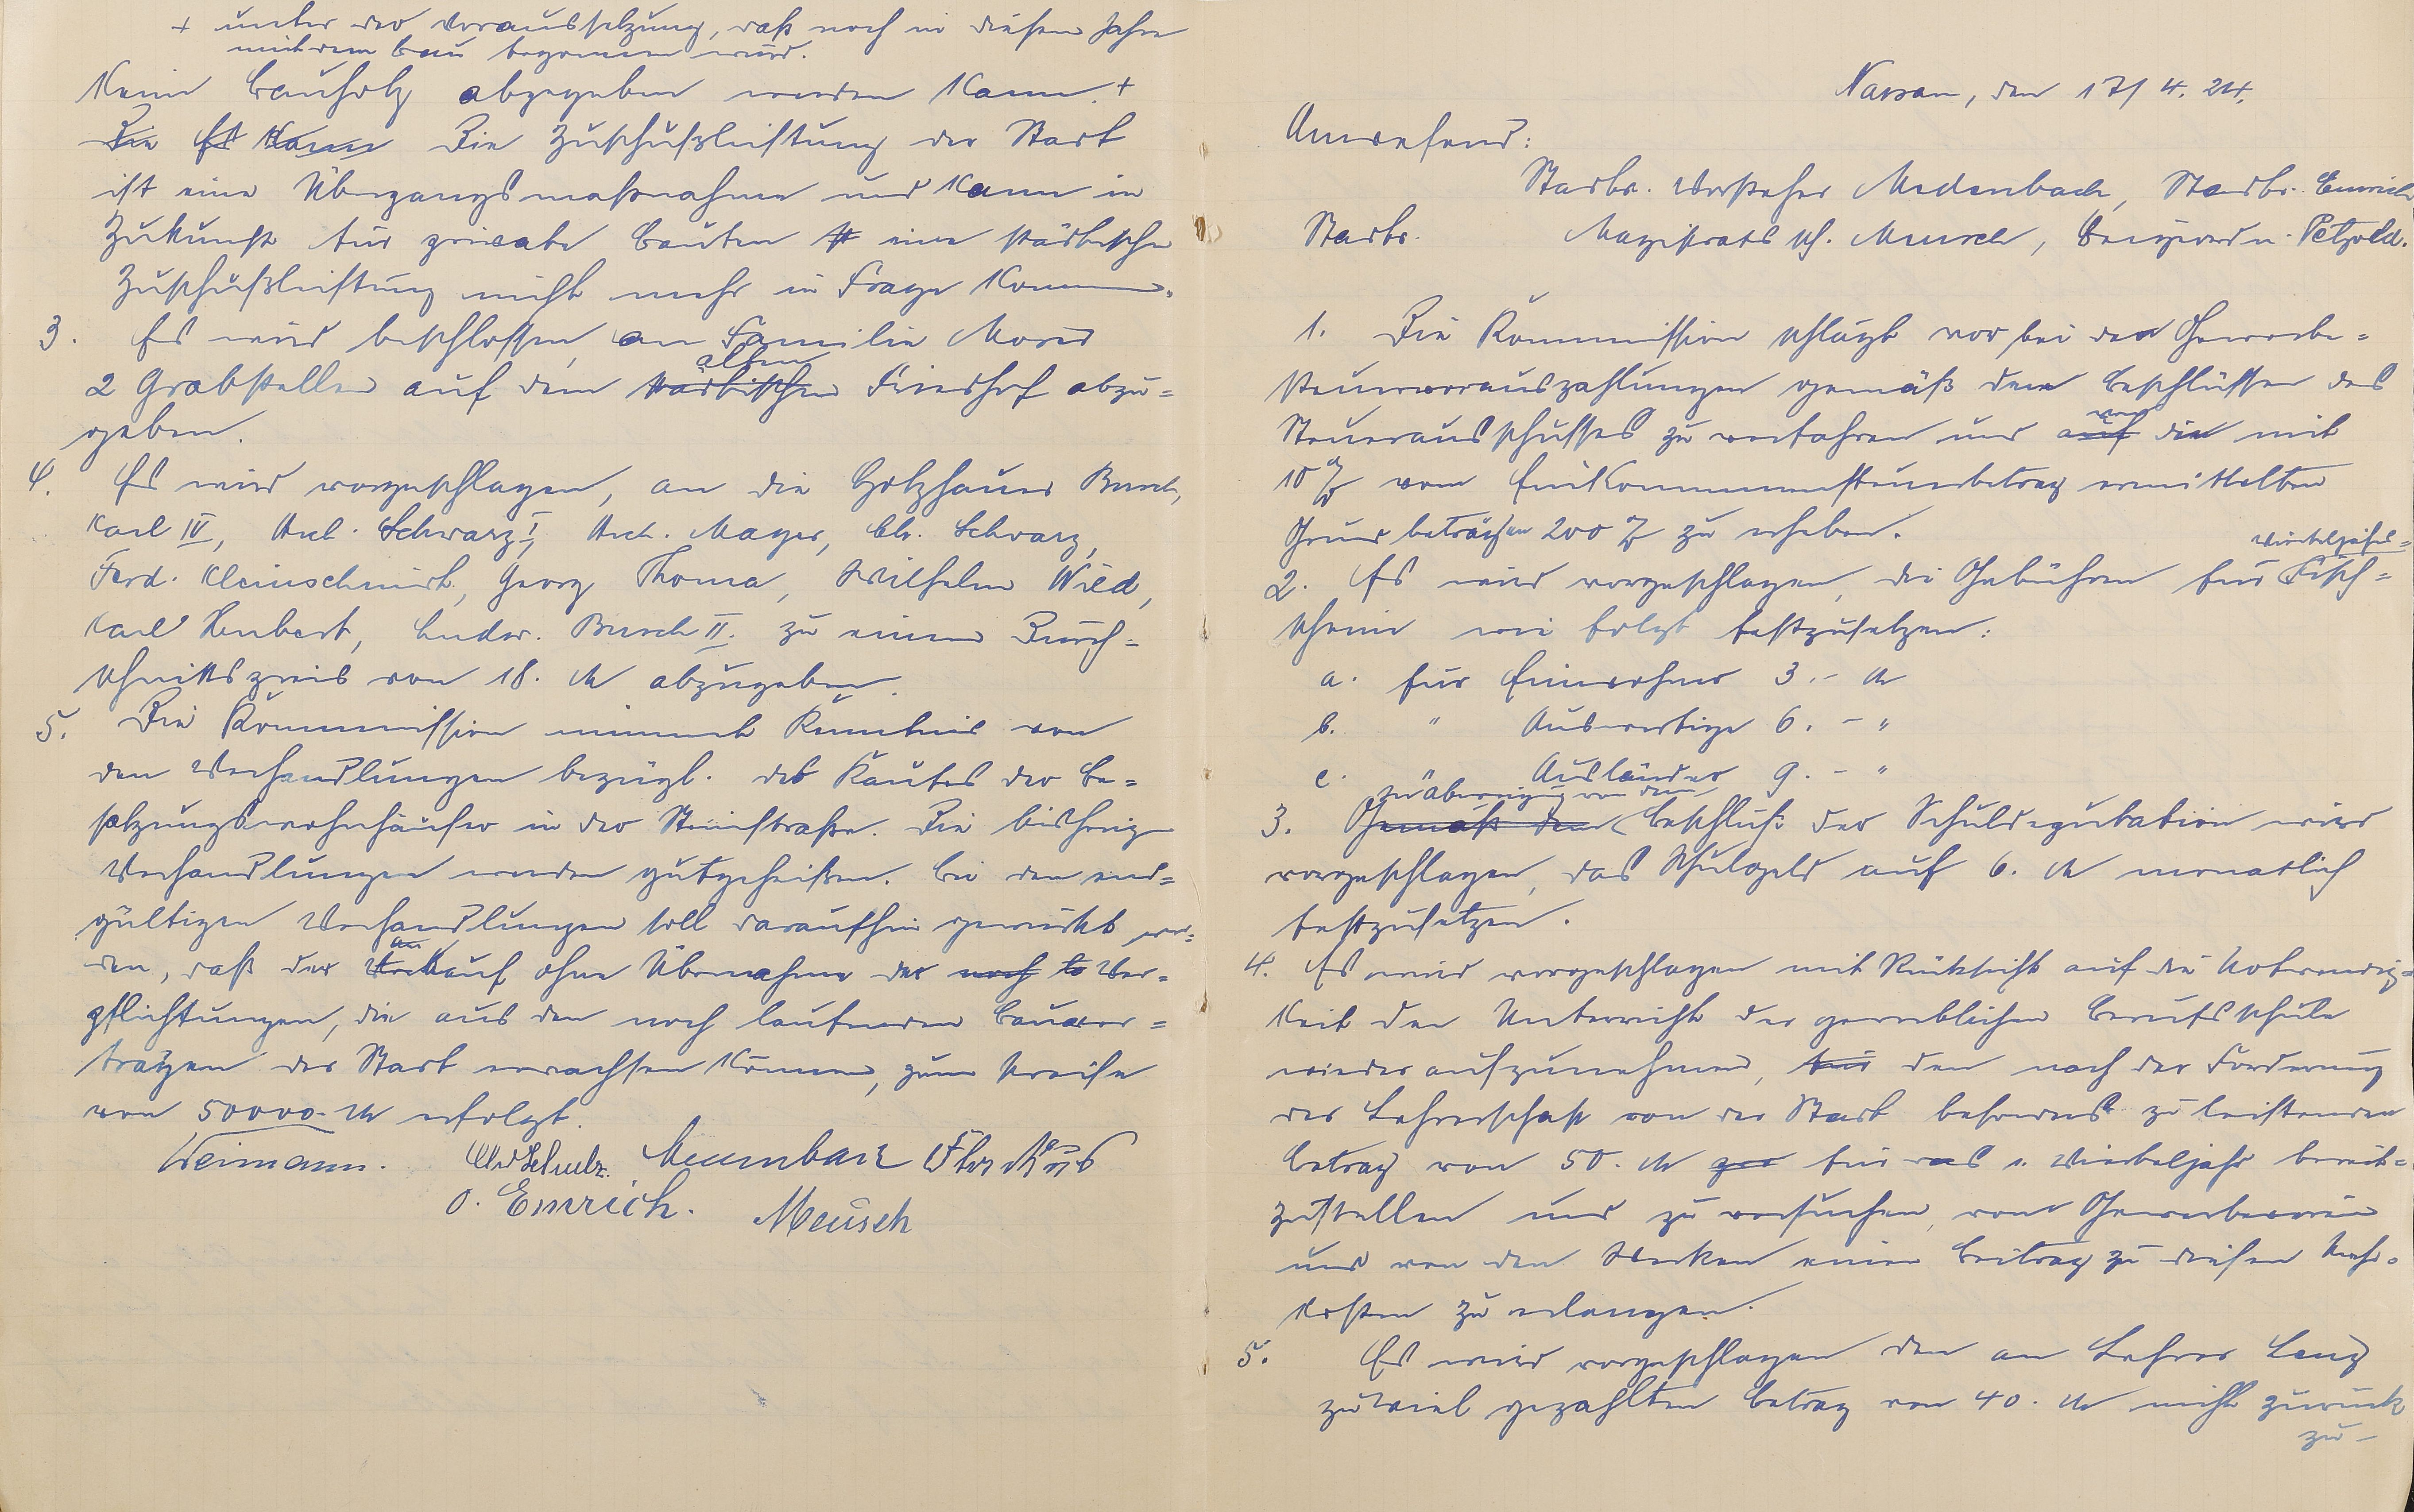 + unter der Voraussetzung, daß noch in diesem Jahre
mit dem Bau begonnen wird.
kein Bauholz abgegeben werden kann. +
Die Es kann Die Zuschußleistung der Stadt
ist eine Übergangsmaßnahme und kann in
Zukunft für private Bauten eine städtische
Zuschußleistung nicht mehr in Frage kommen.
3. Es wird beschlossen, an Familie
alten
2 Grabstellen auf dem städtischen Friedhof abzu=
geben.
4. Es wird vorgeschlagen, an die Holzhauer Busch,
Karl IV, Schwarz I, Mayer, Chr. Schwarz,
Ferd. Kleinschmidt, Georg Thoma, Wilhelm Wild,
Karl Heubert, Ludw. Busch II. zu einem Durch=
schnittspreis von 18. M abzugeben.
5. Die Kommission nimmt Kenntnis von
den Verhandlungen bezügl. des Kaufes der Be=
satzungswohnhäuser in der Steinstraße. Die bisherigen
Verhandlungen werden gutgeheißen. Bei den end=
gültigen Verhandlungen soll daraufhin gewirkt wer=
den, daß der Verkauf ohne Übernahme der noch Ver=
pflichtungen, die aus den noch laufenden Bauver=
trägen der Stadt erwachsen können, zum Preise
von 50000.- M erfolgt.
Weimann. Schulz.
O. Emrich. Meusch
Nassau, den 17/4. 24.
Anwesend:
Stadtv. Vorsteher Medenbach, Stadtv. Emrich
Stadtv. Magistrats Sch. Meusch, Beigeordn. Petzold.
1. Die Kommission schlägt vor, bei den Gewerbe=
steuervorauszahlungen gemäß dem Beschlüssen des
von
Steuerausschusses zu verfahren und auf die mit
10 % vom Einkommensteuerbetrag ermittelten
Grundbeträgen 200 % zu erheben.
Vierteljahrs=
2. Es wird vorgeschlagen, die Gebühren für Fisch=
scheine wie folgt festzusetzen:
a. für Einwohner 3.- M
b. " Auswärtige 6.- "
c. " Ausländer 9.- "
in Abweichung von dem
3. Gemäß dem Beschluß der Schuldeputation wird
vorgeschlagen, das Schulgeld auf 6. M monatlich
festzusetzen.
4. Es wird vorgeschlagen mit Rücksicht auf die Notwendig=
keit den Unterricht der gewerblichen Berufsschule
wieder aufzunehmen, für den nach der Forderung
der Lehrerschaft von der Stadt besonders zu leistenden
Betrag von 50. M für das 1. Vierteljahr bereit=
zustellen und zu versuchen, vom Gewerbeverein
und von den Werken einen Beitrag zu diesen Mehr=
kosten zu erlangen.
5. Es wird vorgeschlagen den an Lehrer Lenz
zuviel gezahlten Betrag von 40. M nicht zurück
zu-